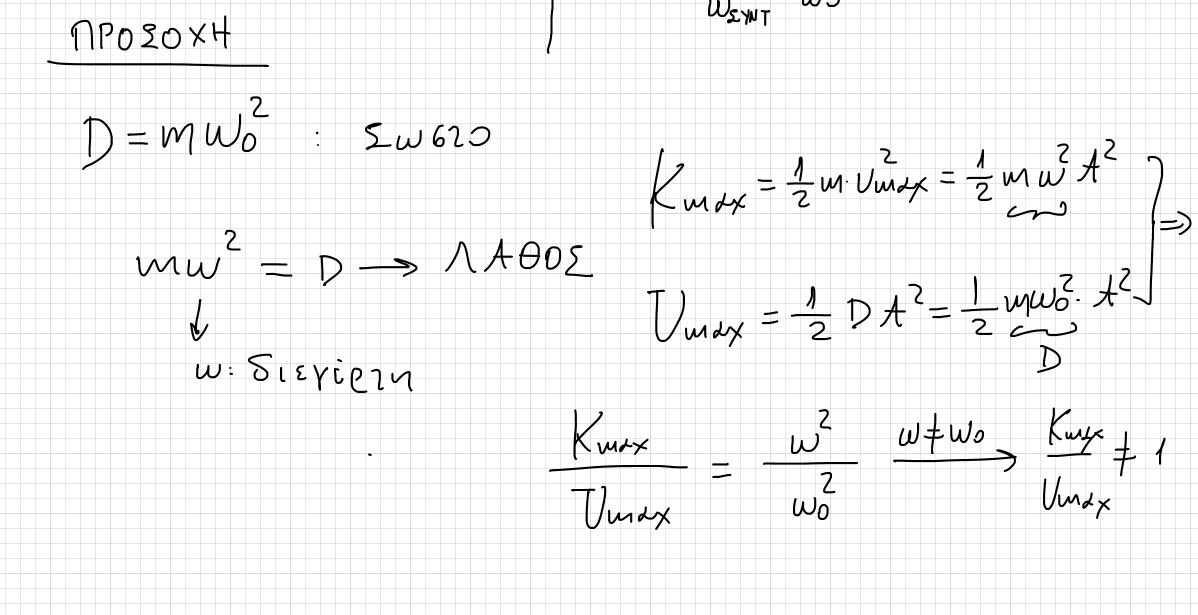 ω_ΣΥΝΤ
ΠΡΟΣΟΧΗ
D = mω₀² : Σωστό
mω² = D → ΛΑΘΟΣ
ω: διεγέρτη
K_max = 1/2 m·υ²_max = 1/2 mω²A² ⇒
U_max = 1/2 DA² = 1/2 mω₀²·A²
D
K_max / U_max = ω² / ω₀² ω≠ω₀ → K_max / U_max ≠ 1